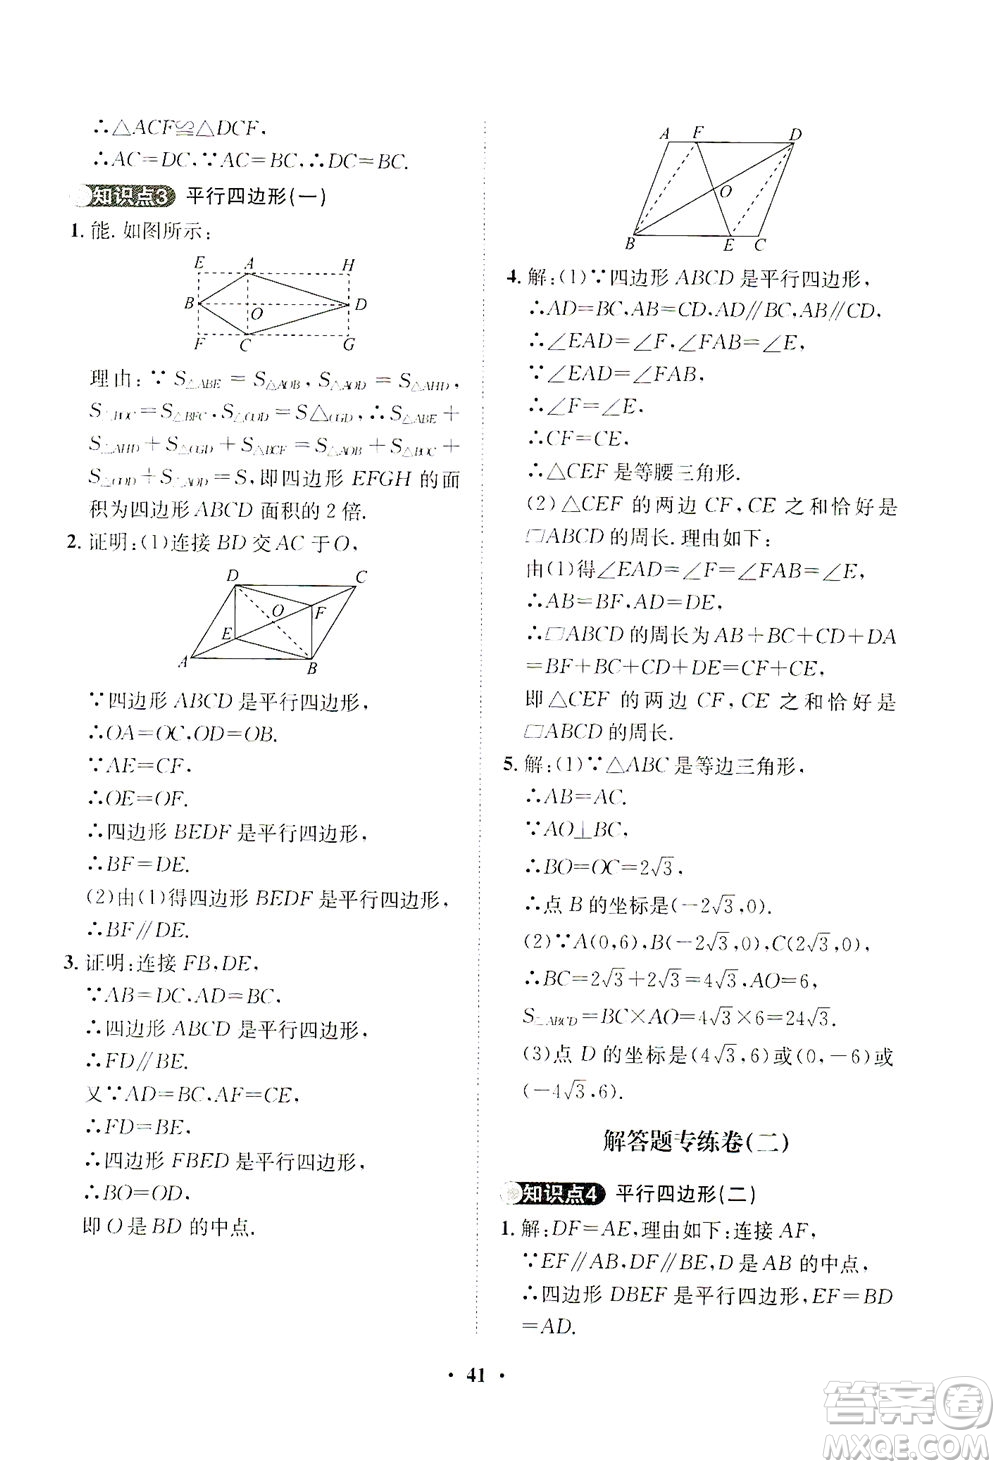 ∴△ACF≌△DCF,
∴AC=DC,∵AC=BC,∴DC=BC.
知识点3 平行四边形(一)
1. 能. 如图所示:
E A H
B O D
F C G
理由:∵S△ABE=S△AOB,S△AOD=S△AHD,
S△BOC=S△BFC,S△COD=S△CGD,∴S△ABE+
S△AHD+S△CGD+S△BCF=S△AOB+S△BOC+
S△COD+S△AOD=S,即四边形 EFGH 的面
积为四边形 ABCD 面积的 2 倍.
2. 证明:(1)连接 BD 交 AC 于 O,
D C
O F
E
A B
∵四边形 ABCD 是平行四边形,
∴OA=OC,OD=OB.
∵AE=CF.
∴OE=OF.
∴四边形 BEDF 是平行四边形,
∴BF=DE.
(2)由(1)得四边形 BEDF 是平行四边形,
∴BF∥DE.
3. 证明:连接 FB,DE,
∵AB=DC,AD=BC,
∴四边形 ABCD 是平行四边形,
∴FD∥BE.
又∵AD=BC,AF=CE,
∴FD=BE,
∴四边形 FBED 是平行四边形,
∴BO=OD,
即 O 是 BD 的中点.
A F D
O
B E C
4. 解:(1)∵四边形 ABCD 是平行四边形,
∴AD=BC,AB=CD,AD∥BC,AB∥CF,
∴∠EAD=∠F,∠E=∠FAB,
∵∠EAD=∠FAB,
∴∠F=∠E.
∴CF=CE.
∴△CEF 是等腰三角形.
(2)△CEF 的两边 CF,CE 之和恰好是
□ABCD 的周长.理由如下:
由(1)得∠EAD=∠F=∠FAB=∠E.
∴AB=BF,AD=DE,
∴□ABCD 的周长为 AB+BC+CD+DA
=BF+BC+CD+DE=CF+CE.
即△CEF 的两边 CF,CE 之和恰好是
□ABCD 的周长.
5. 解:(1)∵△ABC 是等边三角形,
∴AB=AC.
∵AO⊥BC,
∴BO=OC=2√3,
∴点 B 的坐标是(-2√3,0).
(2)∵A(0,6),B(-2√3,0),C(2√3,0),
∴BC=2√3+2√3=4√3,AO=6,
S□ABCD=BC×AO=4√3×6=24√3.
(3)点 D 的坐标是(4√3,6)或(0,-6)或
(-4√3,6).
解答题专练卷(二)
知识点4 平行四边形(二)
1. 解:DF=AE,理由如下:连接 AF,
∵EF∥AB,DF∥BE,D 是 AB 的中点,
∴四边形 DBEF 是平行四边形,EF=BD
=AD.
· 41 ·
答案圈
MXQE.COM